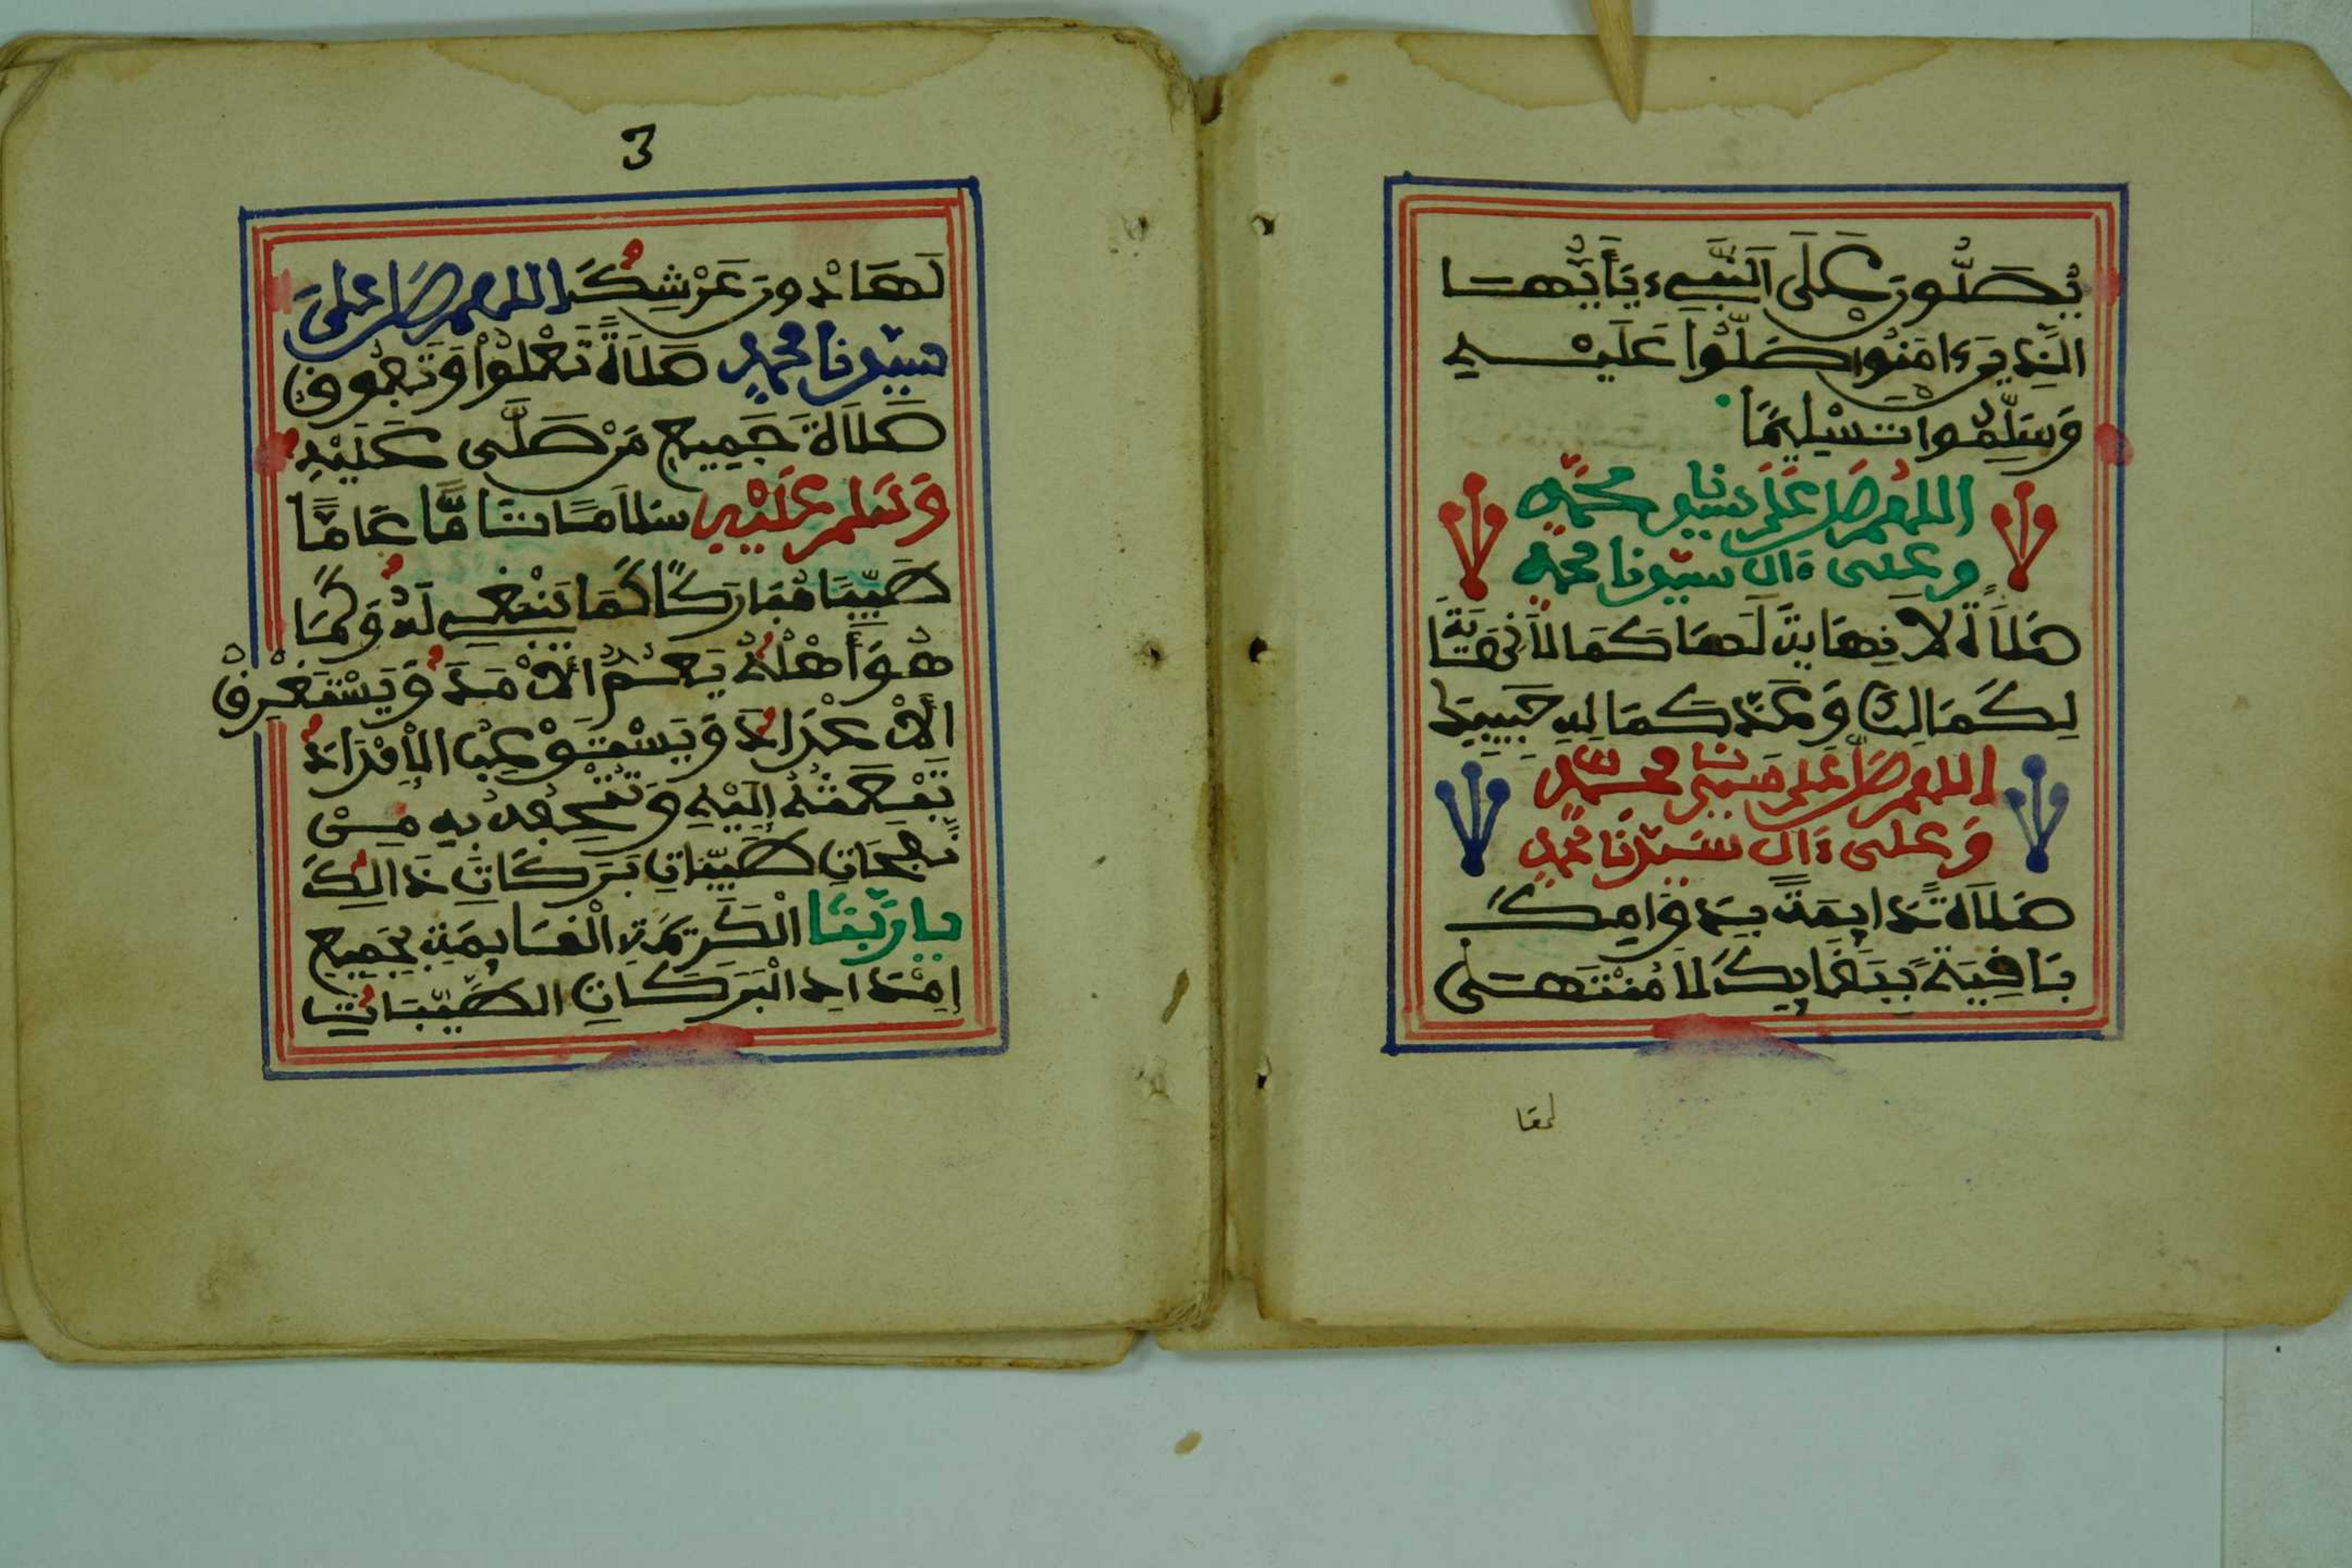 يُصَلُّونَ عَلَى اَلنَّبِيءِ يَٰأَيُّهَا
الَّذِينَ ءَامَنُوا صَلُّوا عَلَيْهِ
وَسَلِّمُوا تَسْلِيمًا
اللهم صل على سيدنا محمد
وعلى ءال سيدنا محمد
صَلَاةً لا نِهَايةَ لَهَا كَمَا لاَ نِهَايَةَ
لِكَمَالِكَ وَعَدَّ كَمَالِهِ
اللهم صل على سيدنا محمد
وَعلى ءال سَيّدنَا محمد
صَلَاةً دَايِمَةً بِدَوَامِكَ
بَاقِيَةً بِبَقَايِكَ لَا مُنْتَهَى
لها
3
لَهَا دُونَ عَرْشِكَ اللهم صل على
سيدنا محمد صَلَاةً تَعْلُوا وَتَفُوقُ
صَلَاةَ جَمِيعِ مَنْ صَلَّى عَلَيْهِ
وَسَلم عَلَيْهِ سَلَامًا تَامًّا عَامًّا
طَيِّبًا مُبَارَكًا كَمَا يَنْبَغِي لَهُ وَكَمَا
هُوَ أَهْلُهُ يَعُمُّ الْأَمَدَ وَيَسْتَغْرِقُ
الْأَعْدَادَ وَيَسْتَوْعِبُ الْأَفْرَادَ
تَبْعَثُهُ إِلَيْهِ وَتُتْحِفُهُ بِهِ مِنْ
نَفَحَاتِ طَيِّبَاتِ بَرَكَاتِ ذَالِكَ
يا رَبّنَا الْكَرِيمَةِ الْقَايِمَةِ بِجَمِيعِ
إِمْدَادِ الْبَرَكَاتِ الطَّيِّبَاتِ